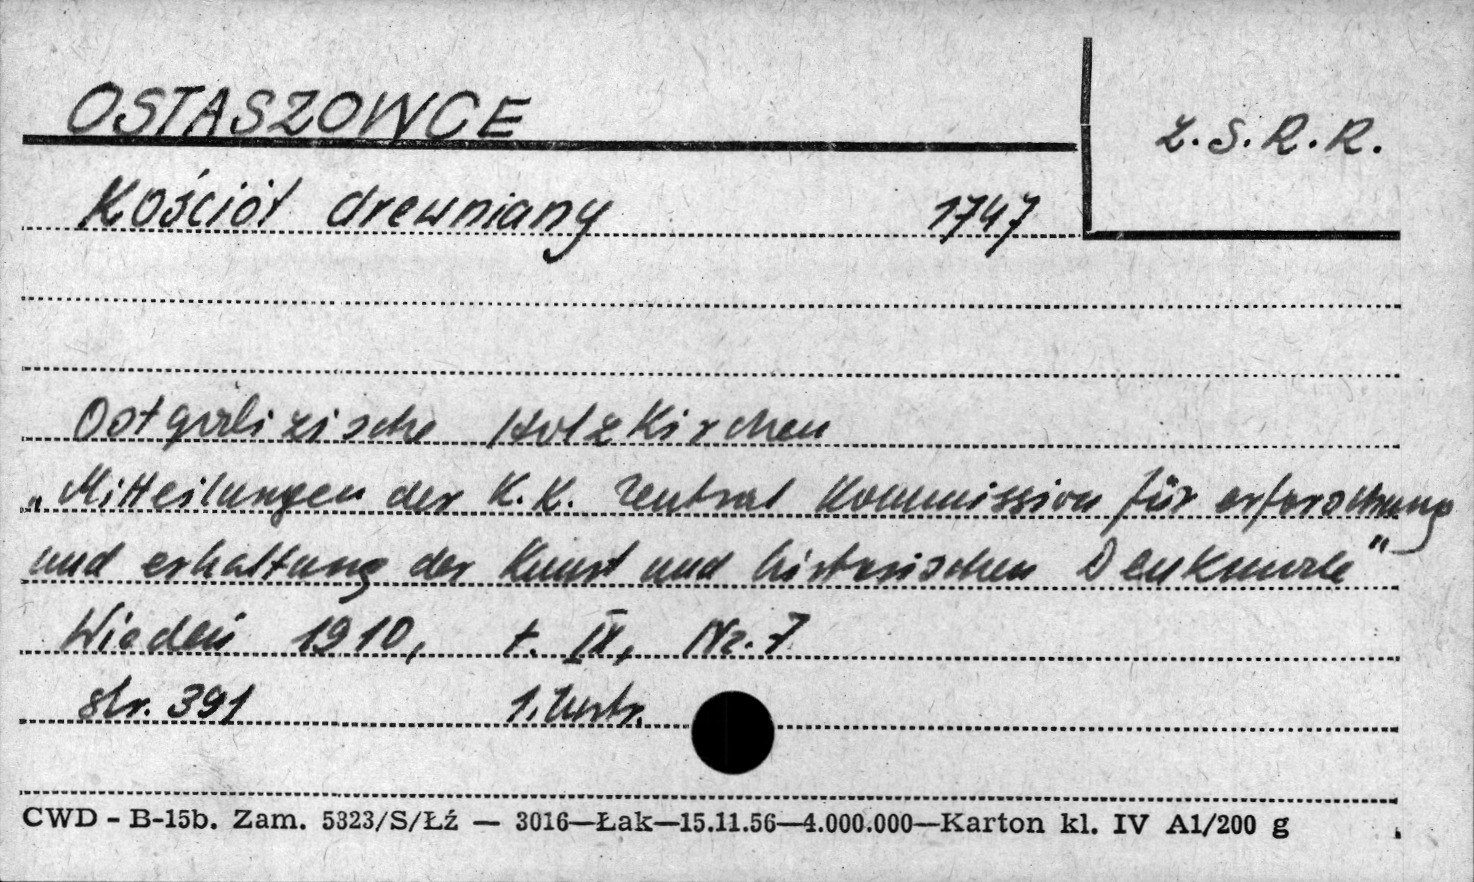 OSTASZOWCE
Z.S.R.R.
Kościół drewniany 1747
Ostgalizische Holzkirchen
„Mitteilungen der K.K. Zentral Kommission für erforschung
und erhaltung der Kunst und historischen Denkmale"
Wiedeń 1910, t. IX, Nr. 7
str. 391 1. ilustr.
CWD - B-15b. Zam. 5323/S/Łź — 3016—Łak—15.11.56—4.000.000—Karton kl. IV A1/200 g